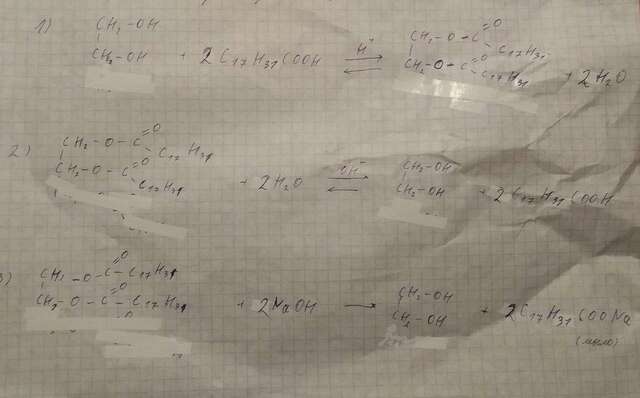 1) CH₂-OH
CH₂-OH + 2 C₁₇H₃₁COOH ⇄ H⁺ CH₂-O-C=O C₁₇H₃₁
CH₂-O-C=O C₁₇H₃₁ + 2H₂O
2) CH₂-O-C=O C₁₇H₃₁
CH₂-O-C=O C₁₇H₃₁ + 2H₂O ⇄ OH⁻ CH₂-OH
CH₂-OH + 2 C₁₇H₃₁COOH
3) CH₂-O-C=O-C₁₇H₃₁
CH₂-O-C=O-C₁₇H₃₁ + 2NaOH → CH₂-OH
CH₂-OH + 2C₁₇H₃₁COONa
(мыло)